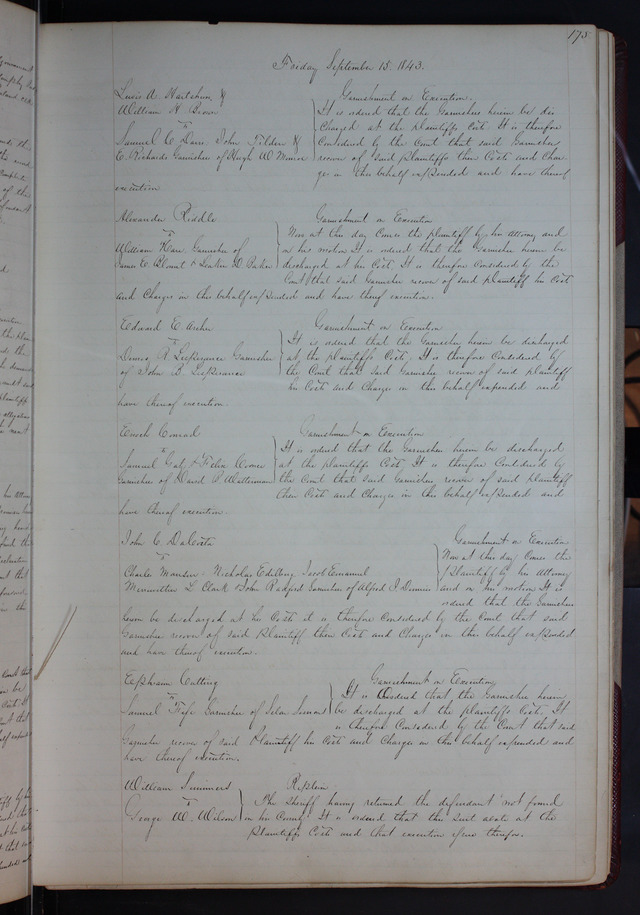 175
Friday September 15. 1843.
Lewis A. Hartshun, & Garnishment on Execution.
William H Brown It is ordered that the Garnishee herein be dis
vs charged at the plaintiffs Cost. It is therefore
Samuel C Davis. John Tilden & Considered by the Court that said Garnishee
E. Richards Garnishee of Hugh W Monroe recover of said plaintiffs their Costs and Char
ges in this behalf expended and have thereof
execution
Alexander Riddle Garnishment on Execution
vs Now at this day Comes the plaintiff by his Attorney and
William Hare Garnishee of on his motion It is ordered that the Garnishee herein be
James E. Blount & Leakin D. Parker discharged at his Cost, It is therefore Considered by the
Court that said Garnishee recover of said plaintiff his Cost
and Charges in this behalf expended and have thereof execution.
Edward E Archer Garnishment on Execution
vs It is ordered that the Garnishee herein be discharged
R Lesperance Garnishee at the plaintiffs Cost. It is therefore Considered by
of John B. Lesperance the Court that said Garnishee recover of said plaintiff
his Costs and Charges in this behalf expended and
have thereof execution.
Enoch Conrad Garnishment on Execution
vs It is ordered that the Garnishee herein be discharged
Samuel Gaty & Felix Coonce at the plaintiffs Cost, It is therefore Considered by
Garnishee of David P. Watterman the Court that said Garnishee recover of said plaintiff
their Costs and Charges in this behalf expended and
have thereof execution.
John C. DaCosta Garnishment on Execution
vs Now at this day Comes the
Charles Mansur Nicholas Ehlberg Jacob Emanuel plaintiff by his Attorney
L Clark John Radford Garnishee of Alfred P. and on his motion It is
ordered that the Garnishee
herein be discharged at his Cost it is therefore Considered by the Court that said
Garnishee recover of said plaintiff their Costs and Charges in this behalf expended
and have thereof execution.
Ephraim Cutting Garnishment on Execution
vs It is Ordered that the Garnishee herein
Samuel Fife Garnishee of Selan Simons be discharged at the plaintiffs Costs, It
is therefore Considered by the Court that said
Garnishee recover of said Plaintiff his Costs and Charges in this behalf expended and
have thereof execution.
William Summers Replevin
vs The Sheriff having returned the defendant "not found
George W. Wilson in his County" It is ordered that the suit abate at the
Plaintiffs Costs and that execution issue therefor.